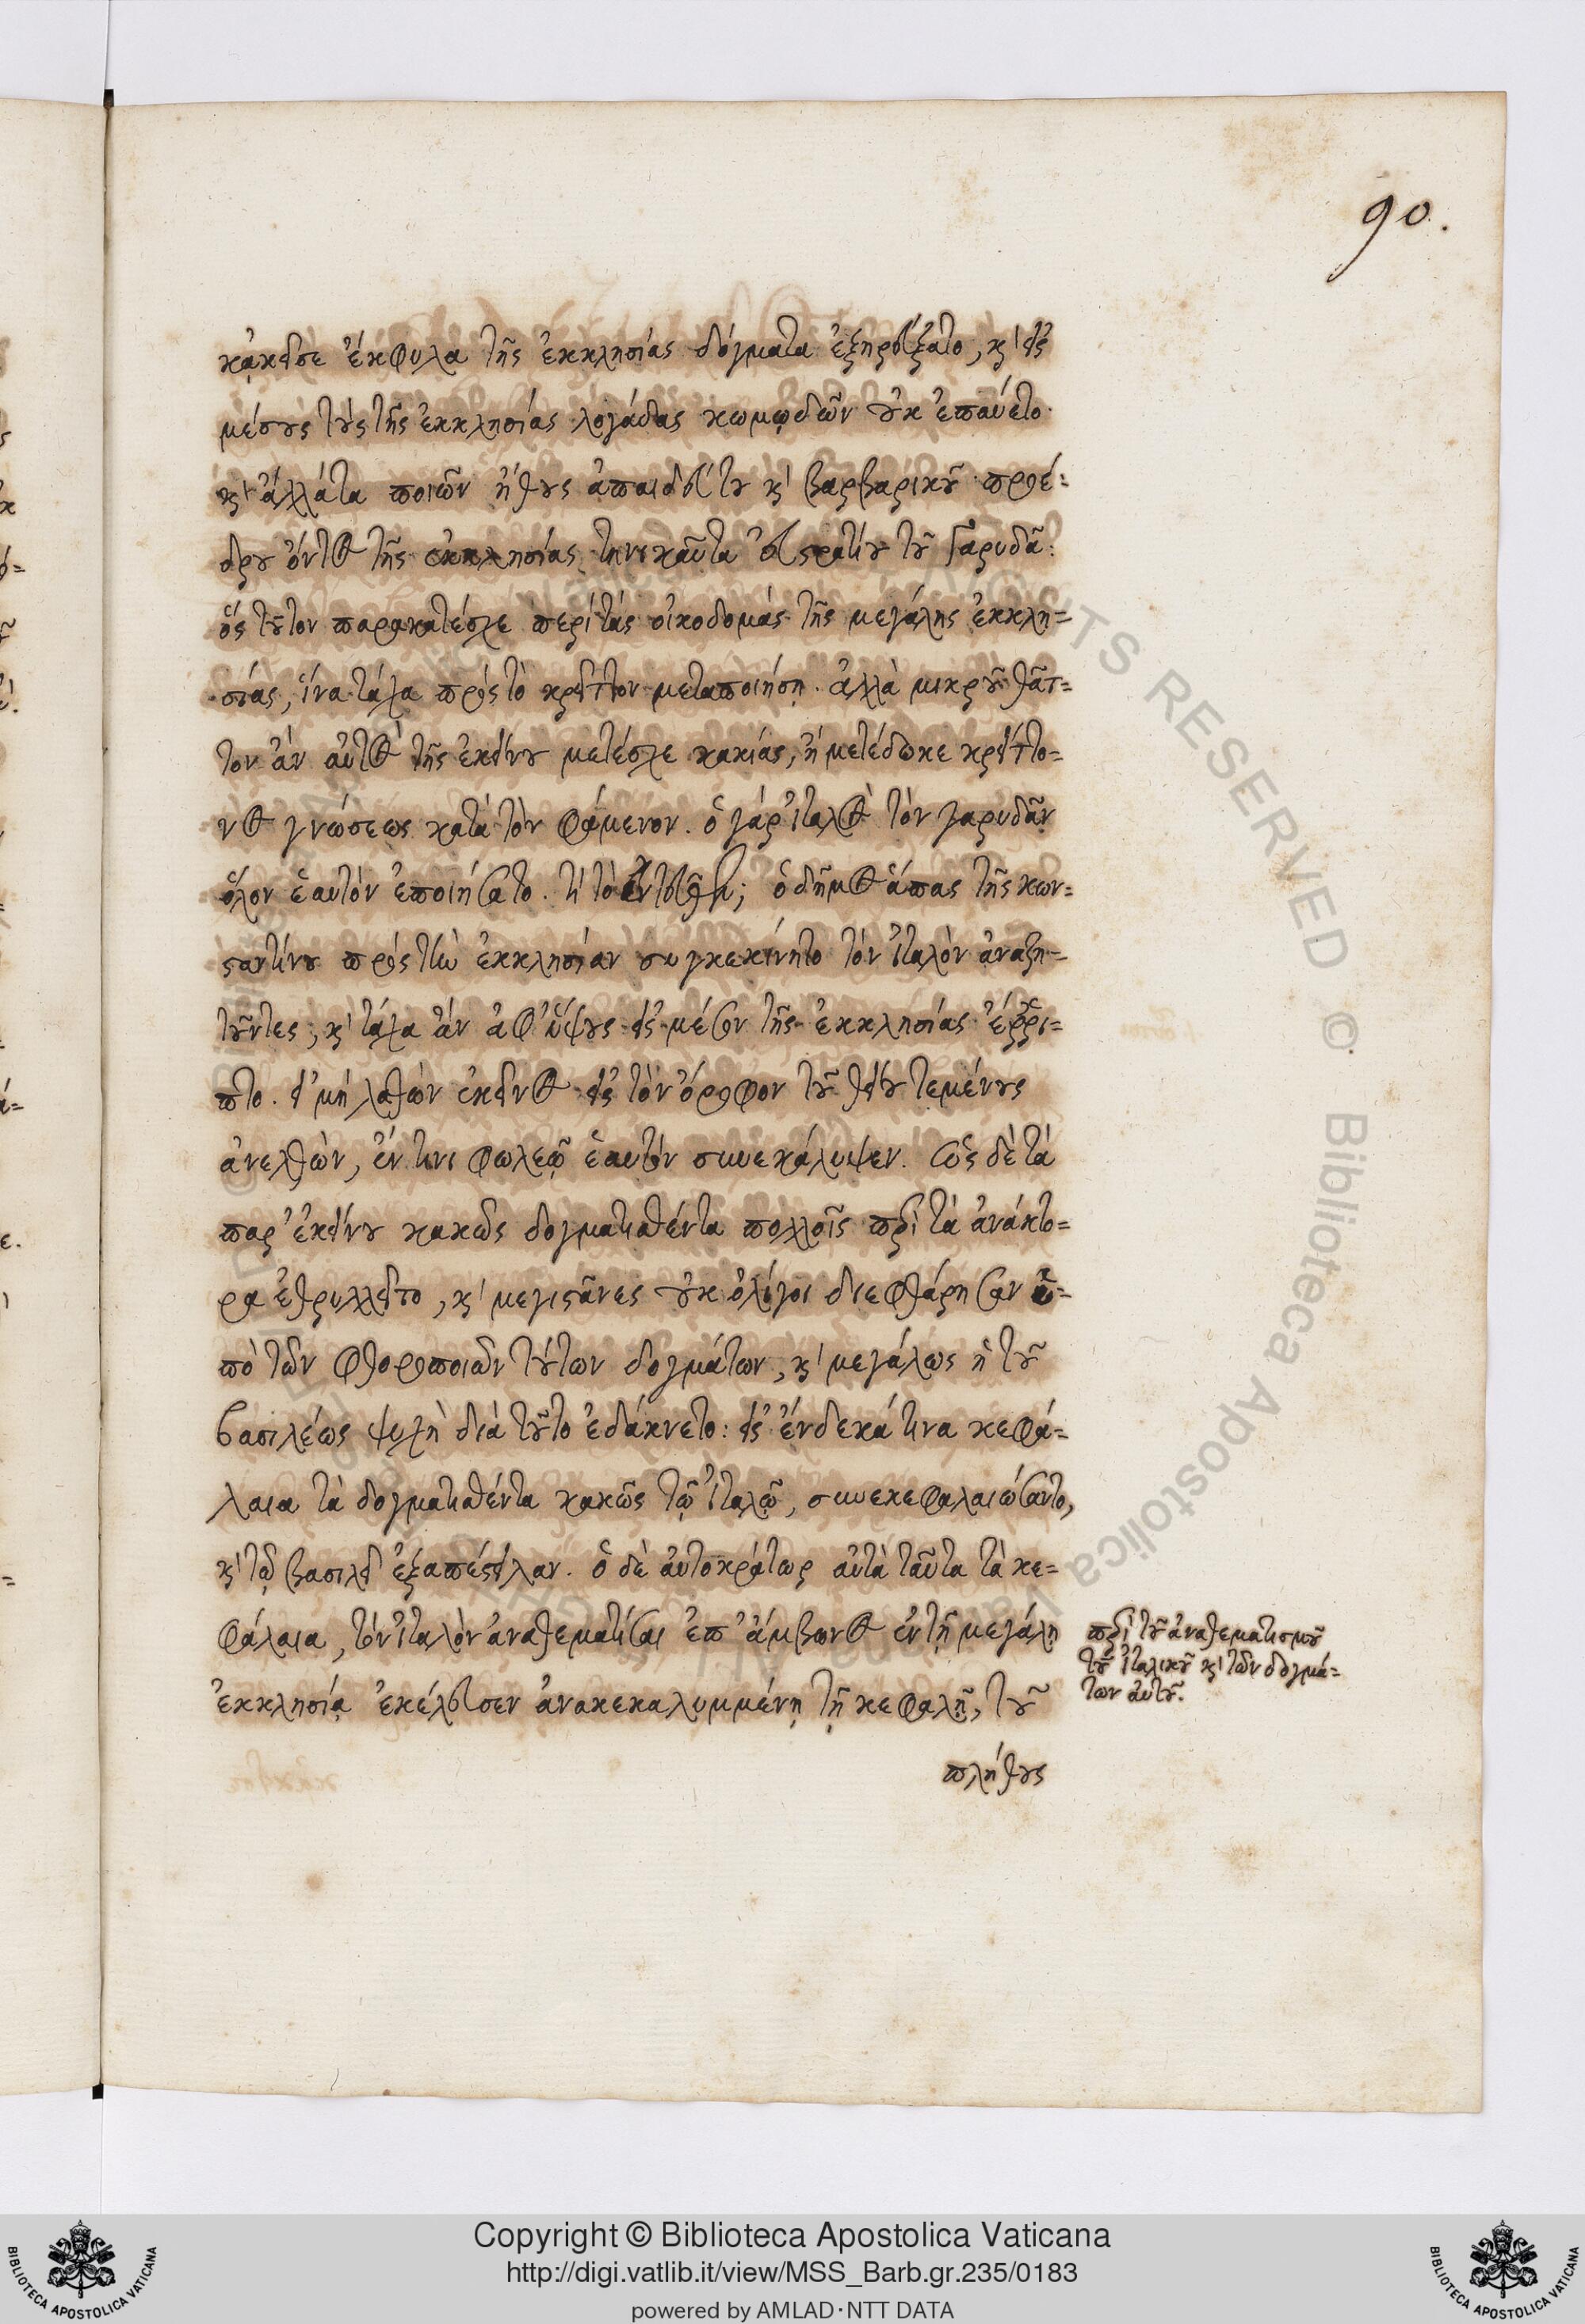 90.
κἀκεῖσε ἔκφυλα τῆς ἐκκλησίας δόγματα ἐξηρεύξατο, κ' εἰς
μέσους τοὺς τῆς ἐκκλησίας λογάδας κωμῳδῶν οὐκ ἐπαύετο.
κ' ἄλλάτα ποιῶν ἤθους ἀπαιδεύτου κ' βαρβαρικοῦ προέ=
δρου ὄντος τῆς ἐκκλησίας τηνικαῦτα εὐστρατίου τοῦ Γαρυδᾶ:
ὃς τοῦτον παρακατέσχε περὶ τὰς οἰκοδομὰς τῆς μεγάλης ἐκκλη=
σίας, ἵνα τάχα πρὸς τὸ κρεῖττον μεταποιήσῃ. ἀλλὰ μικροῦ θᾶτ=
τον ἂν αὐτὸς τῆς ἐκείνου μετέσχε κακίας, ἢ μετέδωκε κρείττο=
νος γνώσεως κατὰ τὸν φάμενον. ὁ γάρ ἰταλὸς τὸν γαρυδᾶν
ὅλον ἑαυτὸν ἐποιήσατο. τί τὸ ἐντεῦθεν; ὁ δῆμος ἅπας τῆς κων=
σταντίνου πρὸς τὴν ἐκκλησίαν συγκεκίνητο τὸν ἰταλὸν ἀναζη=
τοῦντες, κ' τάχα ἂν ἀφ' ὕψους εἰς μέσον τῆς ἐκκλησίας ἔῤῥι=
πτο. εἰ μὴ λαθὼν ἐκεῖνος εἰς τὸν ὄροφον τοῦ θείου τεμένους
ἀνελθὼν, ἔν τινι φωλεῷ ἑαυτὸν συνεκάλυψεν. ὡς δὲ τὰ
παρ' ἐκείνου κακῶς δογματισθέντα πολλοῖς περὶ τὰ ἀνάκτο=
ρα ἐθρυλλεῖτο, κ' μεγιστᾶνες οὐκ ὀλίγοι διεφθάρησαν ὑ=
πὸ τῶν φθοροποιῶν τούτων δογμάτων, κ' μεγάλως ἡ τοῦ
βασιλέως ψυχὴ διὰ τοῦτο ἐδάκνετο: εἰς ἕνδεκά τινα κεφά=
λαια τὰ δογματισθέντα κακῶς τῷ ἰταλῷ, συνεκεφαλαιώσαντο,
κ' τῷ βασιλεῖ ἐξαπέστειλαν. ὁ δὲ αὐτοκράτωρ αὐτὰ ταῦτα τὰ κε=
φάλαια, τὸν ἰταλὸν ἀναθεματίσαι ἐπ' ἄμβωνος ἐν τῇ μεγάλῃ
ἐκκλησίᾳ ἐκέλευσεν ἀνακεκαλυμμένῃ τῇ κεφαλῇ, τοῦ
πλήθους
περὶ τοῦ ἀναθεματισμοῦ
τοῦ ἰταλικοῦ κ' τῶν δογμά=
των αὐτοῦ.
Copyright © Biblioteca Apostolica Vaticana
http://digi.vatlib.it/view/MSS_Barb.gr.235/0183
powered by AMLAD·NTT DATA
BIBLIOTECA APOSTOLICA VATICANA
BIBLIOTECA APOSTOLICA VATICANA